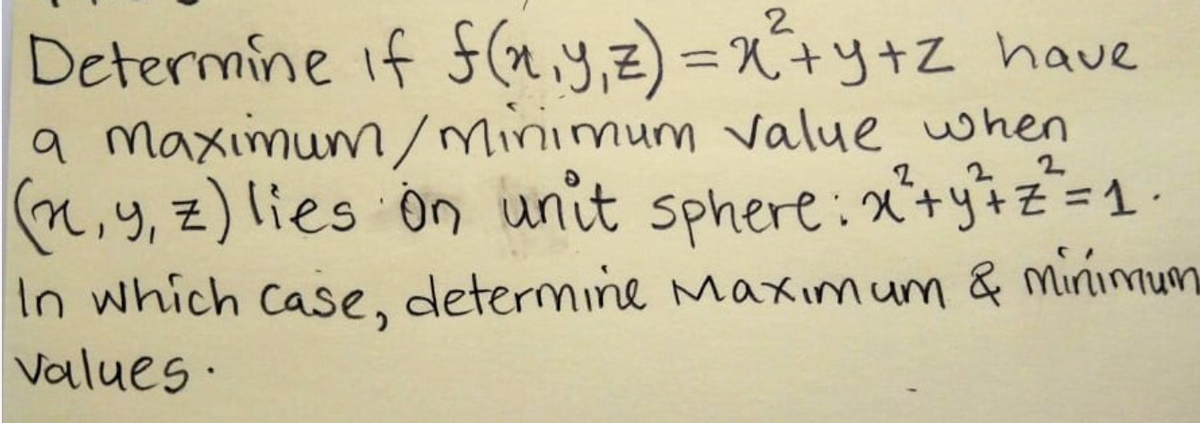 Determine if f(x,y,z) = x²+y+z have
a maximum/minimum value when
(x,y,z) lies on unit sphere: x²+y²+z²=1.
In which case, determine Maximum & minimum
values.